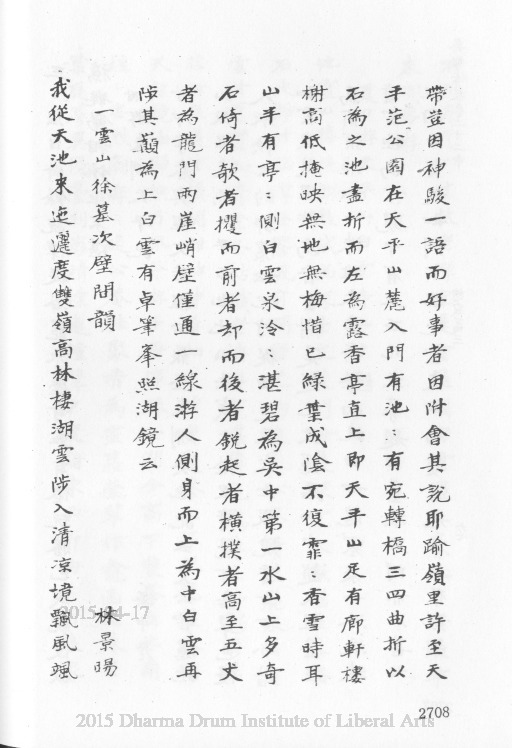 帶豈因神駿一語而好事者因附會其說耶踰嶺里許至天
平范公園在天平山麓入門有池：有宛轉橋三四曲折以
石為之池盡折而左為露香亭直上即天平山足有廊軒樓
榭高低掩映無地無梅惜已綠葉成陰不復霏：香雪時耳
山半有亭：側白雲泉泠：湛碧為吳中第一水山上多奇
石倚者欹者攫而前者却而後者銳起者橫撲者高至五丈
者為龍門兩崖峭壁僅通一線游人側身而上為中白雲再
陟其巔為上白雲有卓筆峯照湖鏡云
一雲山徐墓次壁間韻　林景暘
我從天池來迤邐度雙嶺高林棲湖雲陟入清凉境飄風颯
2708
2015-04-17
2015 Dharma Drum Institute of Liberal Arts